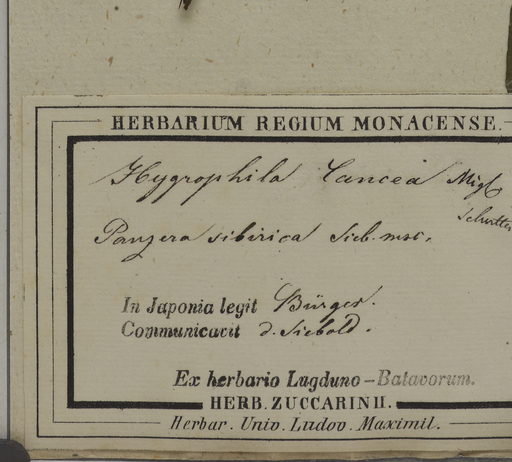 HERBARIUM REGIUM MONACENSE.
Hygrophila lancea Miq
Panzera sibirica Sieb. msc.
In Japonia legit Bürger.
Communicavit d. Siebold.
Ex herbario Lugduno-Batavorum.
HERB. ZUCCARINII.
Herbar. Univ. Ludov. Maximil.